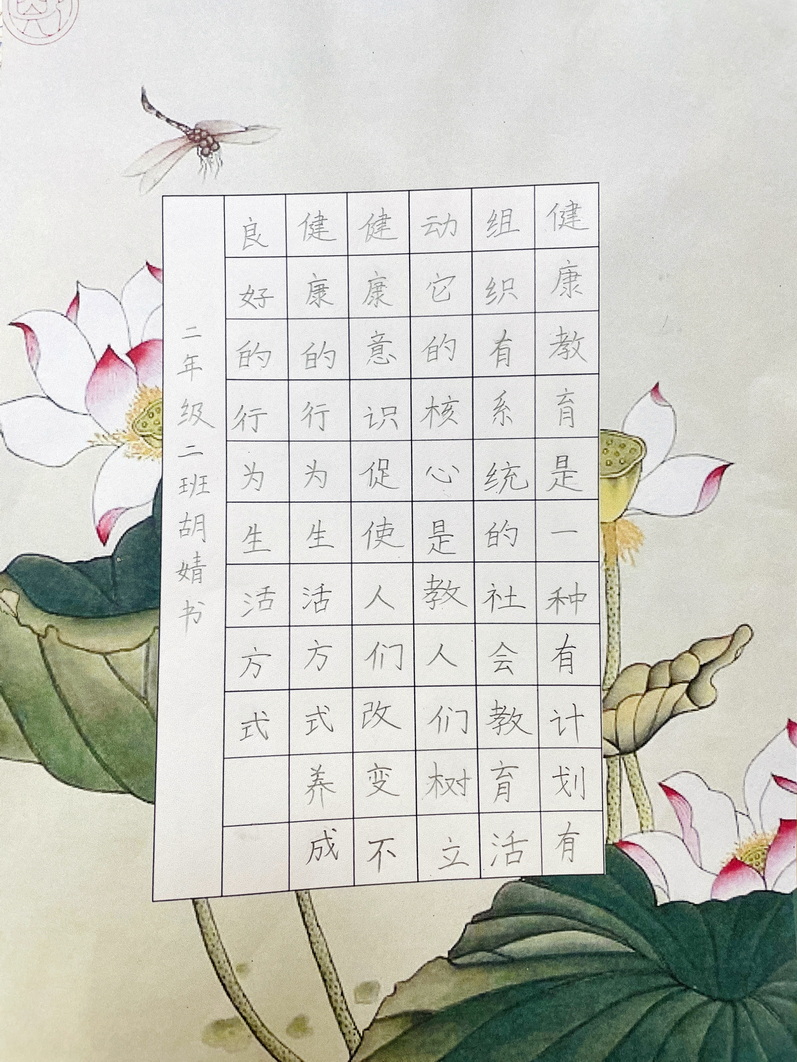 健康教育是一种有计划有
组织有系统的社会教育活
动它的核心是教人们树立
健康意识促使人们改变不
健康的行为生活方式养成
良好的行为生活方式
二年级二班胡婧书